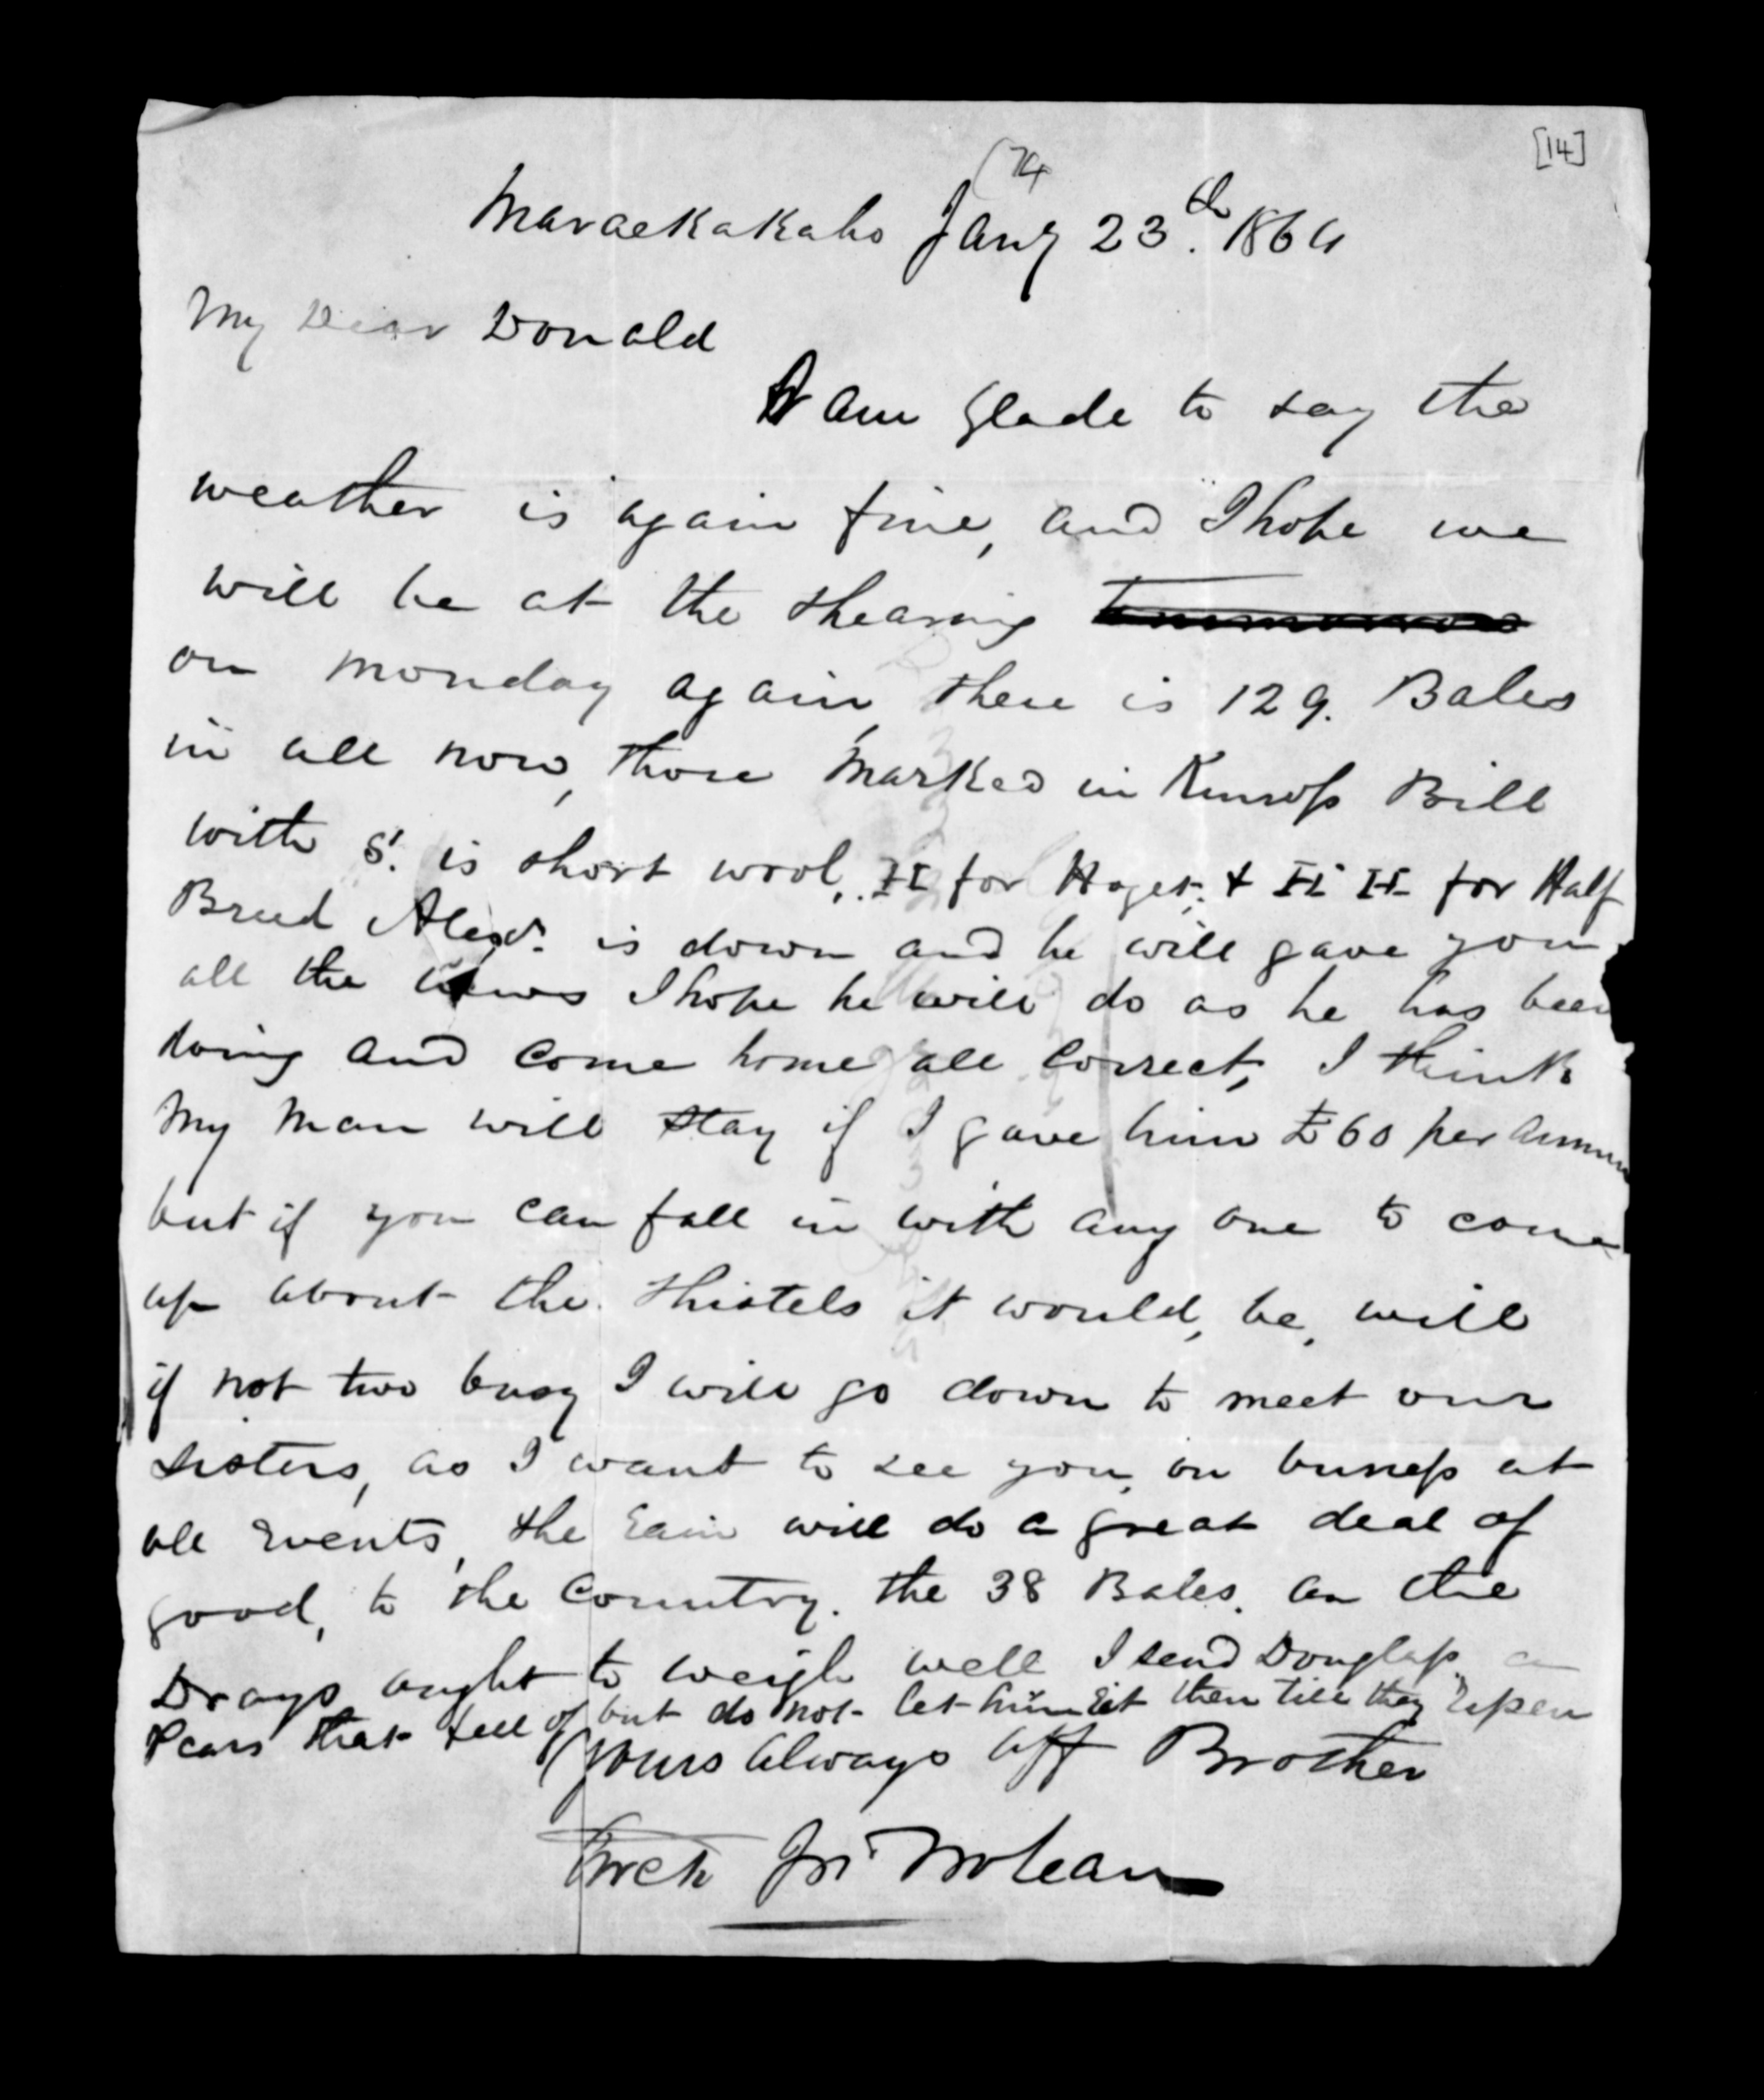 [14]
74
Maraekakaho Jany 23th. 1864
My Dear Donald
I am glade to say the
weather is again fine, and I hope we
will be at the shearing tommorrow
on monday again, there is 129. Bales
in all now, those marked in Kinross Bill
with S. is short wool, H for Hoget, & H H for Half
Breed Alexr. is down and he will gave you
all the news I hope he will do as he has been
doing and come home all correct, I think
my man will stay if I gave him £60 per annum
but if you can fall in with any one to come
up about the thistels it would, be, will
if not two busy I will go down to meet our
sisters, as I want to see you, on buness at
all events, the rain will do a great deal of
good, to the country. the 38 Bales. on the
Drays aught to weigh well I send Douglass a
Pears that fell of but do not let him eat them till they ripen
yours always aff Brother
Arch Jn McLean